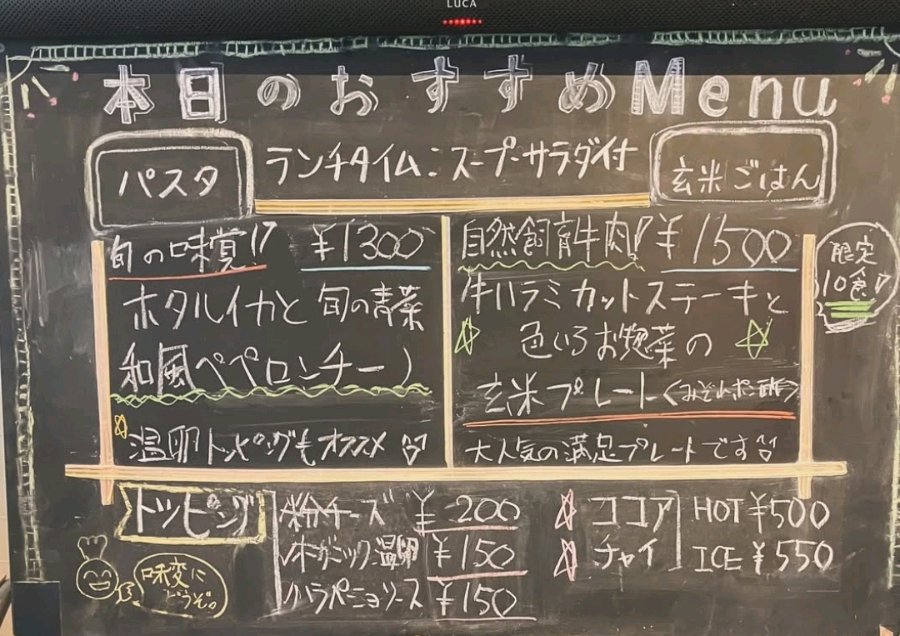 LUCA
本日のおすすめMenu
パスタ
ランチタイム:スープ・サラダ付
玄米ごはん
旬の味覚!! ¥1300
ホタルイカと旬の青菜
和風ペペロンチーノ
温卵トッピングもオススメ
自然飼育牛肉! ¥1500
牛ハラミカットステーキと
色いろお惣菜の
玄米プレート<みぞれポン酢>
大人気の満足プレートです
限定
10食!!
トッピング
粉チーズ ¥200
オーガニック温卵 ¥150
ハラペーニョソース ¥150
味変に
どうぞ。
ココア HOT ¥500
チャイ ICE ¥550